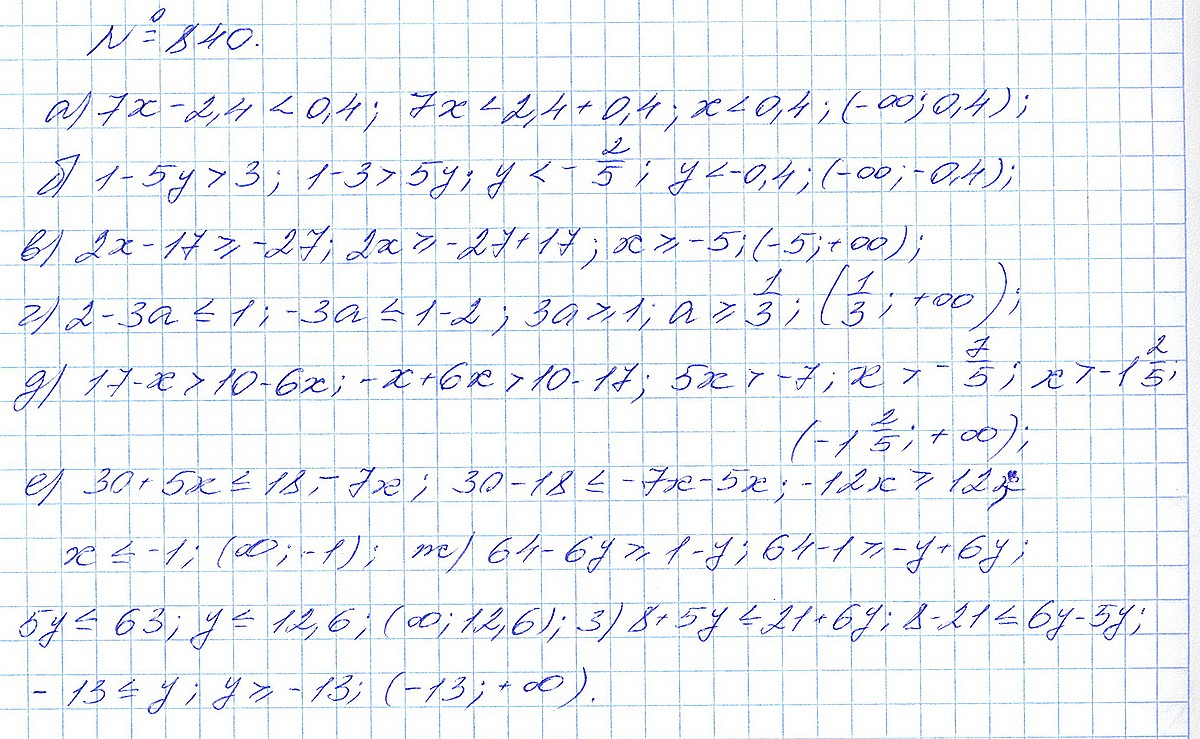 № 840.
а) 7x - 2,4 < 0,4; 7x < 2,4 + 0,4; x < 0,4; (-∞; 0,4);
б) 1 - 5y > 3; 1 - 3 > 5y; y < - 2/5; y < -0,4; (-∞; -0,4);
в) 2x - 17 ⩾ -27; 2x ⩾ -27 + 17; x ⩾ -5; (-5; +∞);
г) 2 - 3a ≤ 1; -3a ≤ 1 - 2; 3a ⩾ 1; a ⩾ 1/3; (1/3; +∞);
д) 17 - x > 10 - 6x; -x + 6x > 10 - 17; 5x > -7; x > - 7/5; x > -1 2/5;
(-1 2/5; +∞);
е) 30 + 5x ≤ 18 - 7x; 30 - 18 ≤ -7x - 5x; -12x ⩾ 12;
x ≤ -1; (∞; -1); ж) 64 - 6y ⩾ 1 - y; 64 - 1 ⩾ -y + 6y;
5y ≤ 63; y ≤ 12,6; (∞; 12,6); з) 8 + 5y ≤ 21 + 6y; 8 - 21 ≤ 6y - 5y;
- 13 ≤ y; y ⩾ -13; (-13; +∞).